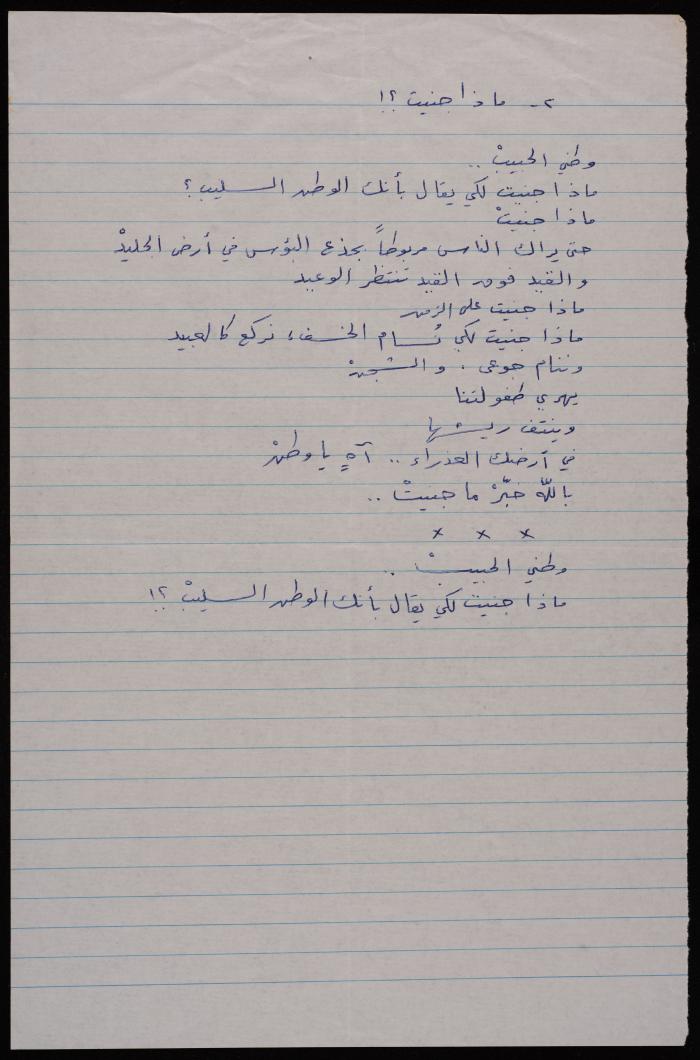 ٢- ماذا جنيت ؟!
وطني الحبيبْ ..
ماذا جنيت لكي يقال بأنك الوطن السليب ؟
ماذا جنيتْ
حتى يراك الناس مربوطاً بجذع البؤس في أرض الجليدْ
والقيد فوق القيد تنتظر الوعيد
ماذا جنيت على الزمن
ماذا جنيت لكي نُسام الخسف، نركع كالعبيد
وننام جوعى . والشجنْ
يهري طفولتنا
وينتف ريشها
في أرضك العذراء .. آهٍ يا وطنْ
باللّه خبّرْ ما جنيتْ ..
× × ×
وطني الحبيبْ ..
ماذا جنيت لكي يقال بأنك الوطن السليبْ ؟!